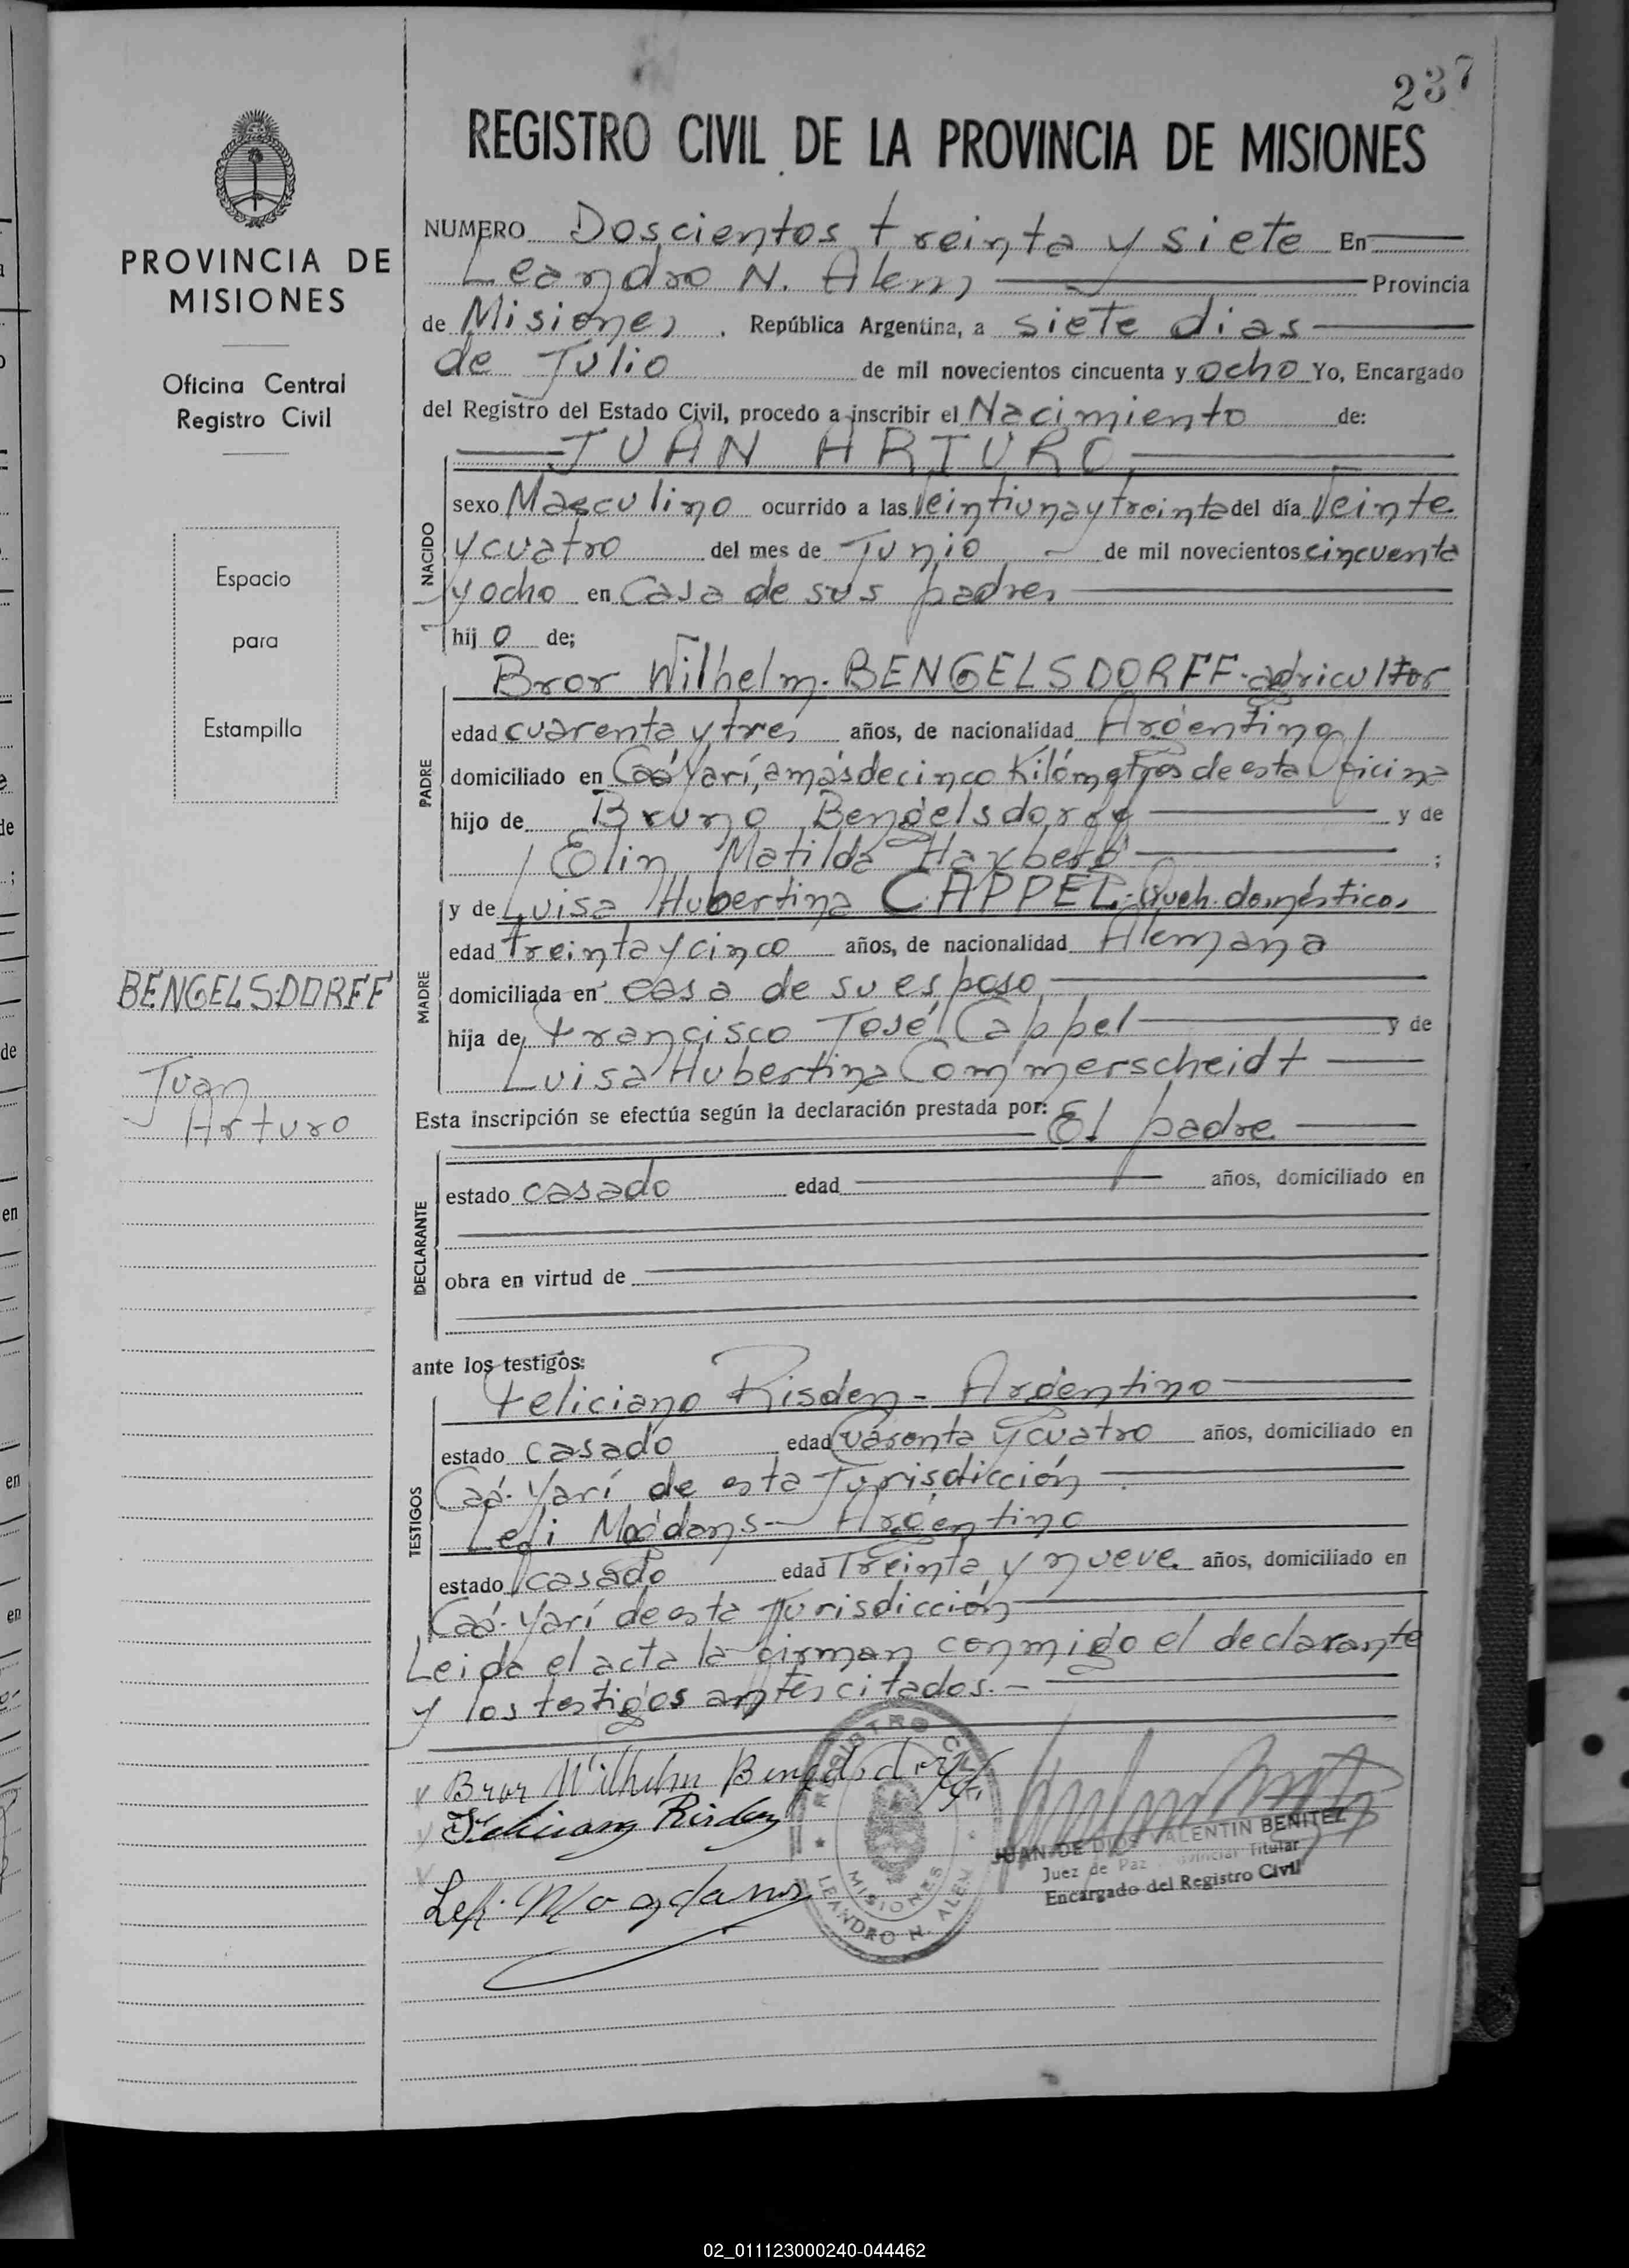 237
REGISTRO CIVIL DE LA PROVINCIA DE MISIONES
PROVINCIA DE
MISIONES
Oficina Central
Registro Civil
Espacio
para
Estampilla
BENGELSDORFF
Juan
Arturo
NUMERO Doscientos treinta y siete En
Leandro N. Alem Provincia
de Misiones. República Argentina, a siete dias
de Julio de mil novecientos cincuenta y ocho Yo, Encargado
del Registro del Estado Civil, procedo a inscribir el Nacimiento de:
JUAN ARTURO
NACIDO
sexo Masculino ocurrido a las Veintiuna y treinta del día Veinte
y cuatro del mes de Junio de mil novecientos cincuenta
y ocho en Casa de sus padres
hij o de;
PADRE
Bror Wilhelm. BENGELSDORFF. agricultor
edad cuarenta y tres años, de nacionalidad Argentina
domiciliado en Caá Yarí, a más de cinco Kilómetros de esta oficina
hijo de Bruno Bengelsdorff y de
Elin Matilda Haxberg ;
MADRE
y de Luisa Hubertina CAPPEL. Queh. domésticos
edad treinta y cinco años, de nacionalidad Alemana
domiciliada en casa de su esposo
hija de Francisco José Cappel y de
Luisa Hubertina Commerscheidt
Esta inscripción se efectúa según la declaración prestada por: El padre
DECLARANTE
estado casado edad años, domiciliado en
obra en virtud de
ante los testigos:
TESTIGOS
Feliciano Risden - Argentino
estado casado edad Cuarenta y cuatro años, domiciliado en
Caá-Yarí de esta Jurisdicción
Lefi Mogdans - Argentino
estado casado edad Treinta y nueve años, domiciliado en
Caá-Yarí de esta Jurisdicción
Leida el acta la firman conmigo el declarante
y los testigos antes citados.-
Bror Wilhelm Bengelsdorff
Feliciano Risden
Lefi Mogdans
REGISTRO CIVIL
MISIONES
LEANDRO N. ALEM
JUAN DE DIOS VALENTIN BENITEZ
Juez de Paz Provincial Titular
Encargado del Registro Civil
02_011123000240-044462